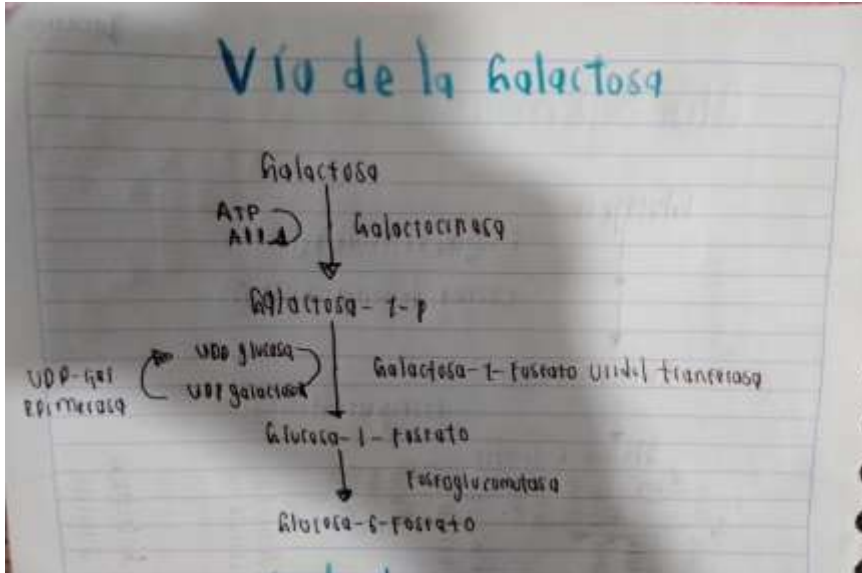 Vía de la Galactosa
Galactosa
ATP
Galactocinasa
Galactosa-1-P
UDP glucosa
UDP galactosa
UDP-Gal
Epimerasa
Galactosa-1-Fosfato Uridil tranferasa
Glucosa-1-Fosfato
Fosfoglucomutasa
Glucosa-6-Fosfato